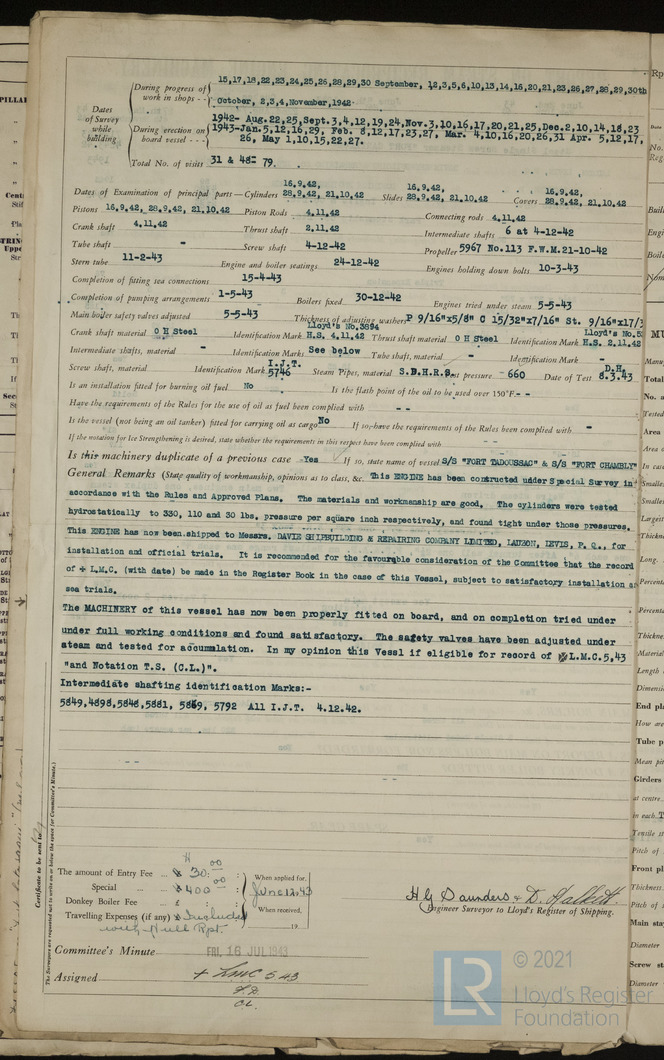 During progress of work in shops - - 15,17,18,22,23,24,25,26,28,29,30 September, 12,3,5,6,10,13,14,16,20,21,23,26,27,28,29,30th
October, 2,3,4,November,1942.
Dates of Survey while building
During erection on board vessel - - - 1942- Aug.22,25,Sept.3,4,12,19,24,Nov.3,10,16,17,20,21,25,Dec.2,10,14,18,23
1943-Jan.5,12,16,29, Feb. 8,12,17,23,27, Mar. 4,10,16,20,26,31 Apr. 5,12,17,
26, May 1,10,15,22,27.
Total No. of visits 31 & 48= 79.
Dates of Examination of principal parts—Cylinders 16.9.42, 28.9.42, 21.10.42 Slides 16.9.42, 28.9.42, 21.10.42 Covers 16.9.42, 28.9.42, 21.10.42
Pistons 16.9.42, 28.9.42, 21.10.42 Piston Rods 4.11.42 Connecting rods 4.11.42
Crank shaft 4.11.42 Thrust shaft 2.11.42 Intermediate shafts 6 at 4-12-42
Tube shaft - Screw shaft 4-12-42 Propeller 5967 No.113 F.W.M.21-10-42
Stern tube 11-2-43 Engine and boiler seatings 24-12-42 Engines holding down bolts 10-3-43
Completion of fitting sea connections 15-4-43
Completion of pumping arrangements 1-5-43 Boilers fixed 30-12-42 Engines tried under steam 5-5-43
Main boiler safety valves adjusted 5-5-43 Thickness of adjusting washers P 9/16"x5/8" C 15/32"x7/16" St. 9/16"x17/3
Crank shaft material O H Steel Identification Mark Lloyd's No.3894 H.S. 4.11.42 Thrust shaft material O H Steel Identification Mark Lloyd's No.5 H.S. 2.11.42
Intermediate shafts, material - Identification Marks See below Tube shaft, material - Identification Mark -
Screw shaft, material Identification Mark I.J.T. 5746 Steam Pipes, material S.D.H.R.S. Test pressure 660 Date of Test D.H. 8.3.43
Is an installation fitted for burning oil fuel No Is the flash point of the oil to be used over 150°F. - -
Have the requirements of the Rules for the use of oil as fuel been complied with - -
Is the vessel (not being an oil tanker) fitted for carrying oil as cargo No If so, have the requirements of the Rules been complied with -
If the notation for Ice Strengthening is desired, state whether the requirements in this respect have been complied with - -
Is this machinery duplicate of a previous case Yes If so, state name of vessel S/S "FORT TADOUSSAC" & S/S "FORT CHAMBLY"
General Remarks (State quality of workmanship, opinions as to class, &c. This ENGINE has been contructed under Special Survey in
accordance with the Rules and Approved Plans. The materials and workmanship are good. The cylinders were tested
hydrostatically to 330, 110 and 30 lbs. pressure per square inch respectively, and found tight under those pressures.
This ENGINE has now been shipped to Messrs. DAVIE SHIPBUILDING & REPAIRING COMPANY LIMITED, LAUZON, LEVIS, P. Q., for
installation and official trials. It is recommended for the favourable consideration of the Committee that the record
of + L.M.C. (with date) be made in the Register Book in the case of this Vessel, subject to satisfactory installation a
sea trials.
The MACHINERY of this vessel has now been properly fitted on board, and on completion tried under
under full working conditions and found satisfactory. The safety valves have been adjusted under
steam and tested for accumulation. In my opinion this Vessl if eligible for record of L.M.C.5,43
"and Notation T.S. (C.L.)".
Intermediate shafting identification Marks:-
5849,4898,5848,5881, 5869, 5792 All I.J.T. 4.12.42.
Certificate to be sent to
The Surveyors are requested not to write on or below the space for Committee's Minute.
The amount of Entry Fee ... $ 30.00 : When applied for,
Special ... $ 400.00 : June 12.43
Donkey Boiler Fee ... £ : When received,
Travelling Expenses (if any) $ Included 19
with Hull Rpt.
H G Saunders & D. Halkett.
Engineer Surveyor to Lloyd's Register of Shipping.
Committee's Minute FRI. 16 JUL 1943
Assigned + LMC 5.43
C.L.
© 2021
LR
Lloyd's Register
Foundation